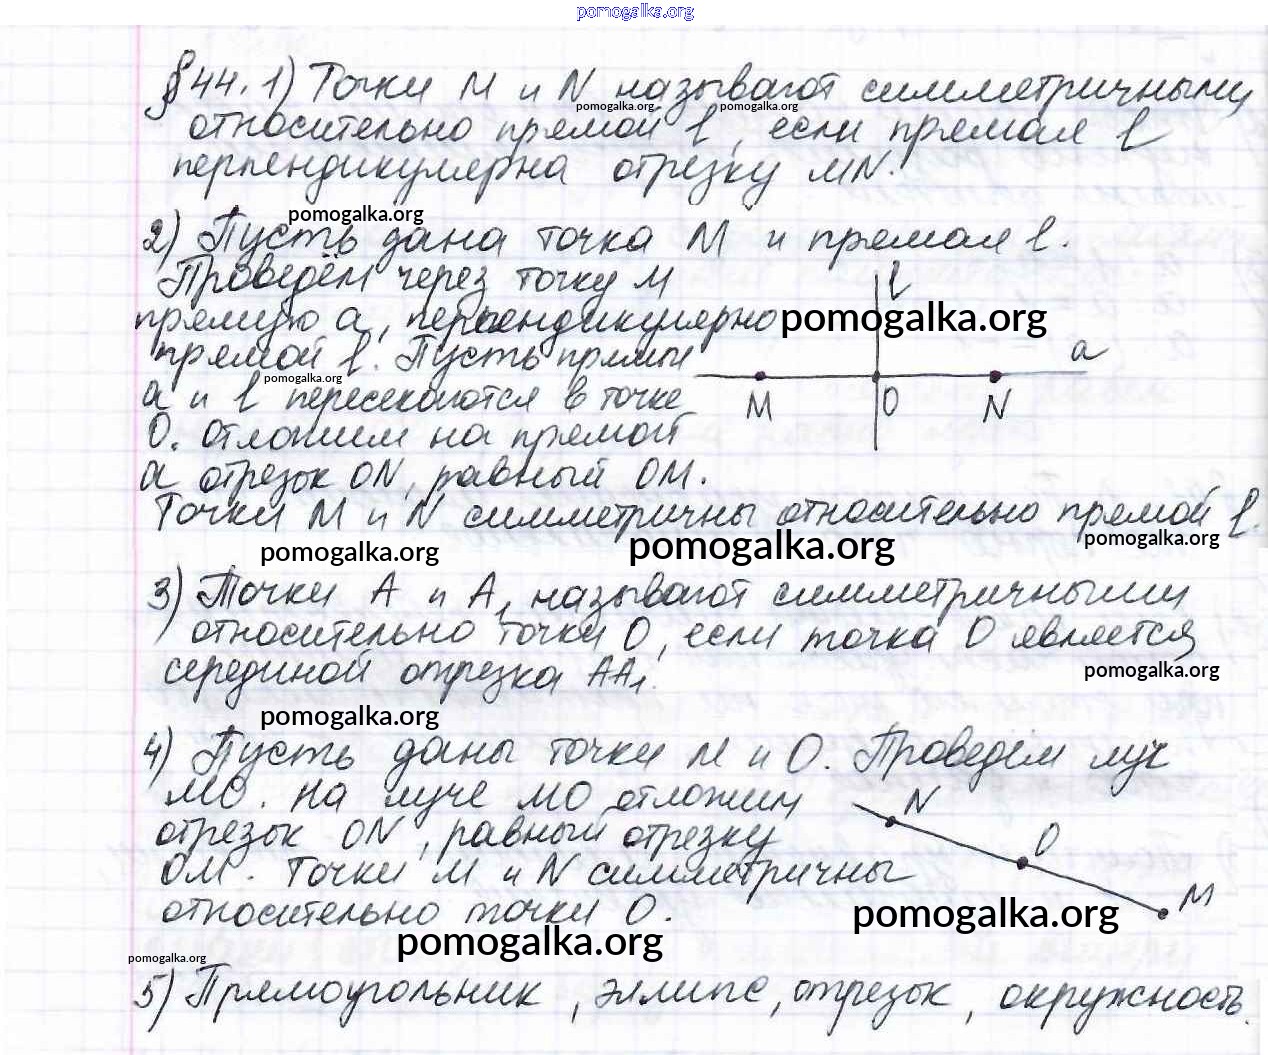 pomogalka.org
§44. 1) Точки M и N называют симметричными
pomogalka.org pomogalka.org
относительно прямой l, если прямая l
перпендикулярна отрезку MN.
pomogalka.org
2) Пусть дана точка M и прямая l.
Проведём через точку M
l
прямую a, перпендикулярно
pomogalka.org
прямой l. Пусть прямые
a
pomogalka.org
a и l пересекаются в точке
M O N
O. Отложим на прямой
a отрезок ON, равный OM.
Точки M и N симметричны относительно прямой l.
pomogalka.org pomogalka.org pomogalka.org
3) Точки A и A₁ называют симметричными
относительно точки O, если точка O является
середи­ной отрезка AA₁.
pomogalka.org
pomogalka.org
4) Пусть даны точки M и O. Проведём луч
MO. На луче MO отложим
N
отрезок ON, равный отрезку
O
OM. Точки M и N симметричны
M
относительно точки O.
pomogalka.org
pomogalka.org
pomogalka.org
5) Прямоугольник, эллипс, отрезок, окружность.